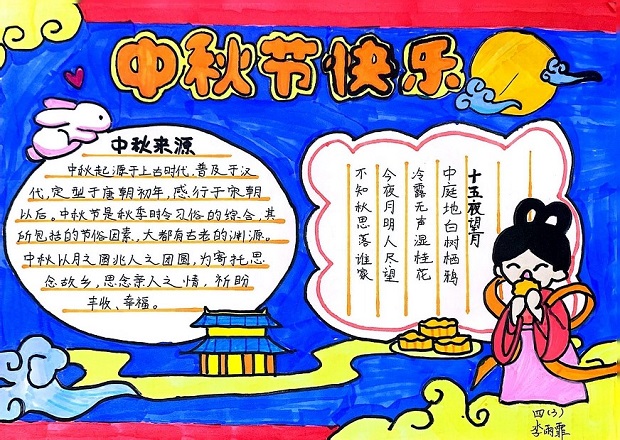 中秋节快乐
中秋来源
中秋起源于上古时代,普及于汉
代,定型于唐朝初年,盛行于宋朝
以后。中秋节是秋季时令习俗的综合,其
所包括的节俗因素,大都有古老的渊源。
中秋以月之圆兆人之团圆,为寄托思
念故乡,思念亲人之情,祈盼
丰收、幸福。
十五夜望月
中庭地白树栖鸦
冷露无声湿桂花
今夜月明人尽望
不知秋思落谁家
四(3)
李雨霏